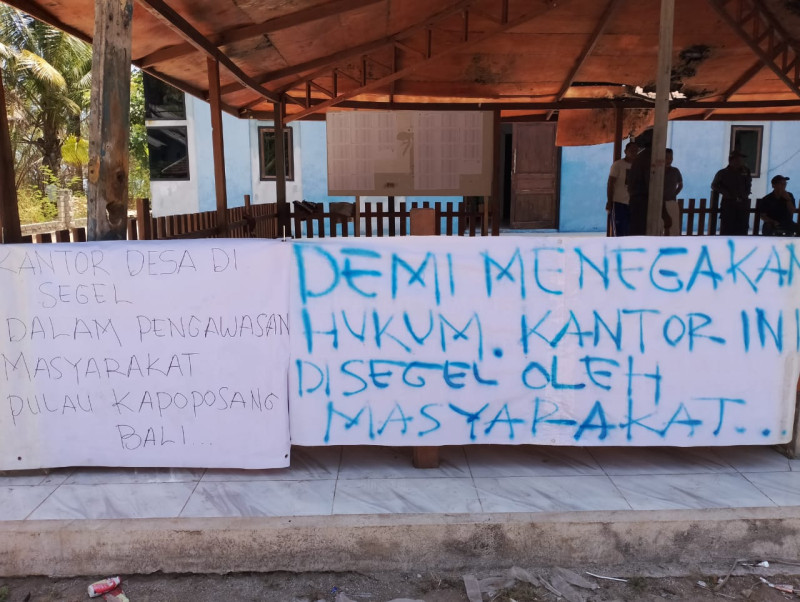 KANTOR DESA DI
SEGEL
DALAM PENGAWASAN
MASYARAKAT
PULAU KAPOPOSANG
BALI...
DEMI MENEGAKAN
HUKUM. KANTOR INI
DISEGEL OLEH
MASYARAKAT...